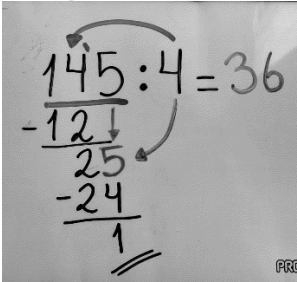 145 : 4 = 36
- 12
25
- 24
1
PRO